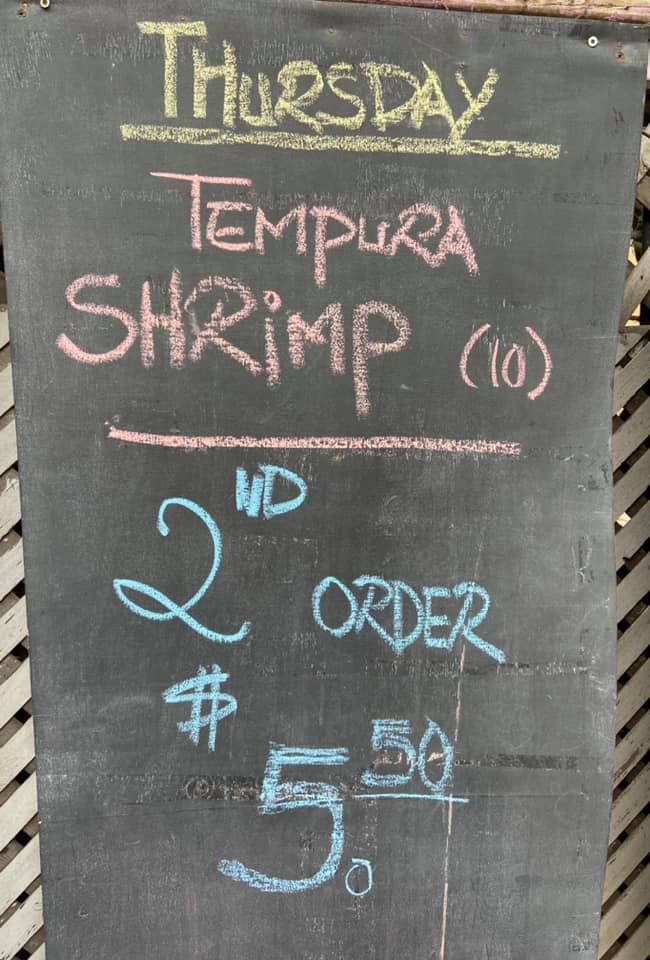 THURSDAY
TEMPURA
SHRiMP (10)
2ND ORDER
$5.50